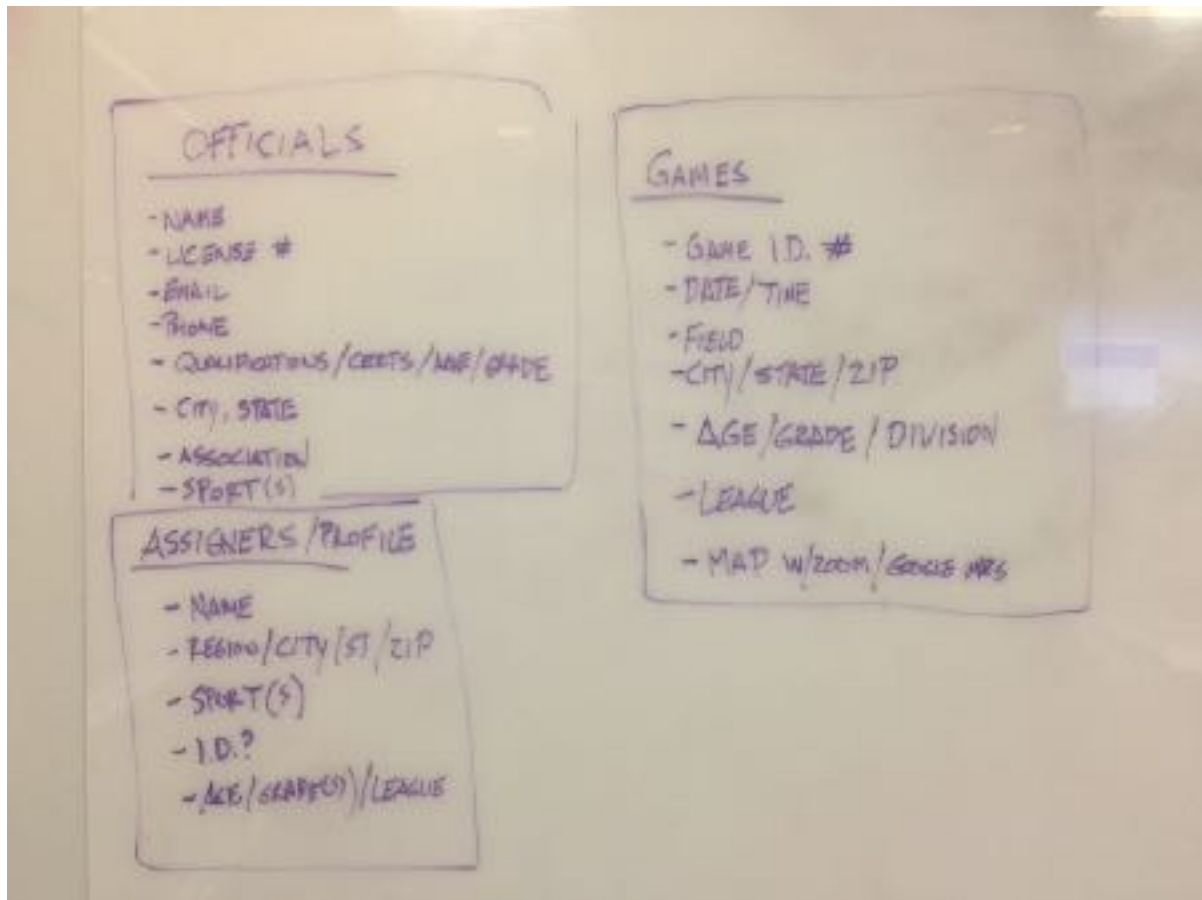 OFFICIALS
- NAME
- LICENSE #
- EMAIL
- PHONE
- QUALIFICATIONS/CERTS/AGE/GRADE
- CITY, STATE
- ASSOCIATION
- SPORT(S)
ASSIGNERS/PROFILE
- NAME
- REGION/CITY/ST/ZIP
- SPORT(S)
- I.D.?
- AGE/GRADE(S)/LEAGUE
GAMES
- GAME I.D. #
- DATE/TIME
- FIELD
- CITY/STATE/ZIP
- AGE/GRADE/DIVISION
- LEAGUE
- MAP W/ZOOM/GOOGLE MAPS